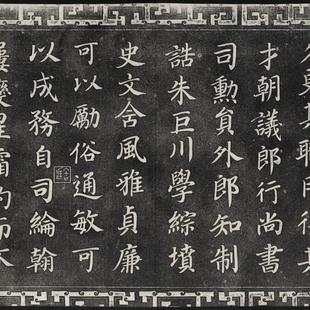 其職用得其
才朝議郎行尚書
司勳員外郎知制
誥朱巨川學綜墳
史文含風雅貞廉
可以勵俗通敏可
以成務自司綸翰
屢變星霜酌而不